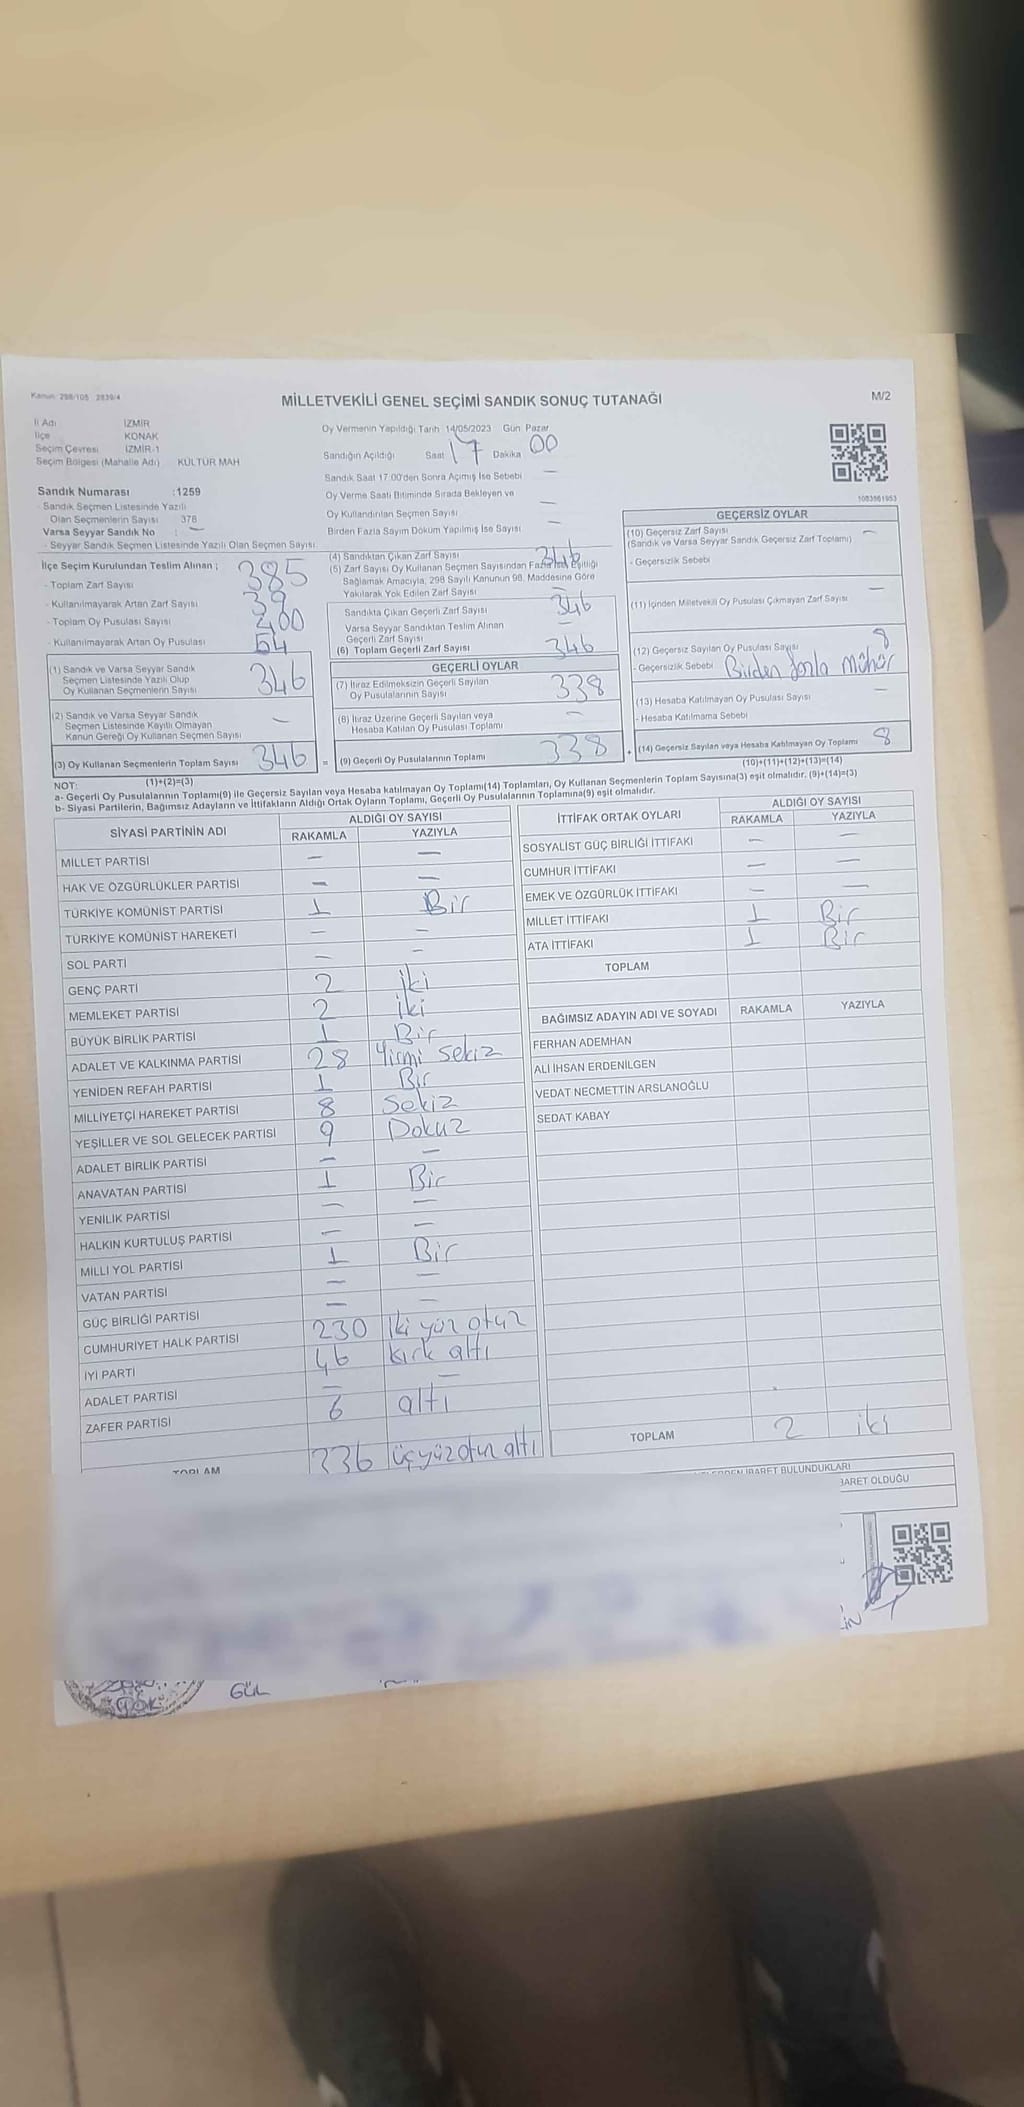 Kanun: 298/105 2839/4
MİLLETVEKİLİ GENEL SEÇİMİ SANDIK SONUÇ TUTANAĞI
M/2
İl Adı İZMİR
İlçe KONAK
Seçim Çevresi İZMİR-1
Seçim Bölgesi (Mahalle Adı) KÜLTÜR MAH
Sandık Numarası :1259
- Sandık Seçmen Listesinde Yazılı
Olan Seçmenlerin Sayısı : 376
Varsa Seyyar Sandık No : —
- Seyyar Sandık Seçmen Listesinde Yazılı Olan Seçmen Sayısı:
Oy Vermenin Yapıldığı Tarih 14/05/2023 Gün Pazar
Sandığın Açıldığı Saat 17 Dakika 00
Sandık Saat 17:00'den Sonra Açılmış İse Sebebi —
Oy Verme Saati Bitiminde Sırada Bekleyen ve
Oy Kullandırılan Seçmen Sayısı —
Birden Fazla Sayım Döküm Yapılmış İse Sayısı —
1083861953
İlçe Seçim Kurulundan Teslim Alınan ;
- Toplam Zarf Sayısı 385
- Kullanılmayarak Artan Zarf Sayısı 39
- Toplam Oy Pusulası Sayısı 400
- Kullanılmayarak Artan Oy Pusulası 54
(1) Sandık ve Varsa Seyyar Sandık
Seçmen Listesinde Yazılı Olup
Oy Kullanan Seçmenlerin Sayısı 346
(2) Sandık ve Varsa Seyyar Sandık
Seçmen Listesinde Kayıtlı Olmayan
Kanun Gereği Oy Kullanan Seçmen Sayısı —
(3) Oy Kullanan Seçmenlerin Toplam Sayısı 346
(1)+(2)=(3)
(4) Sandıktan Çıkan Zarf Sayısı 346
(5) Zarf Sayısı Oy Kullanan Seçmen Sayısından Fazla İse Eşitliği
Sağlamak Amacıyla, 298 Sayılı Kanunun 98. Maddesine Göre
Yakılarak Yok Edilen Zarf Sayısı —
Sandıkta Çıkan Geçerli Zarf Sayısı 346
Varsa Seyyar Sandıktan Teslim Alınan
Geçerli Zarf Sayısı —
(6) Toplam Geçerli Zarf Sayısı 346
GEÇERLİ OYLAR
(7) İtiraz Edilmeksizin Geçerli Sayılan
Oy Pusulalarının Sayısı 338
(8) İtiraz Üzerine Geçerli Sayılan veya
Hesaba Katılan Oy Pusulası Toplamı —
= (9) Geçerli Oy Pusulalarının Toplamı 338
GEÇERSİZ OYLAR
(10) Geçersiz Zarf Sayısı
(Sandık ve Varsa Seyyar Sandık Geçersiz Zarf Toplamı) —
- Geçersizlik Sebebi
(11) İçinden Milletvekili Oy Pusulası Çıkmayan Zarf Sayısı —
(12) Geçersiz Sayılan Oy Pusulası Sayısı 8
- Geçersizlik Sebebi Birden fazla mühür
(13) Hesaba Katılmayan Oy Pusulası Sayısı —
- Hesaba Katılmama Sebebi
+ (14) Geçersiz Sayılan veya Hesaba Katılmayan Oy Toplamı 8
(10)+(11)+(12)+(13)=(14)
NOT:
a- Geçerli Oy Pusulalarının Toplamı(9) ile Geçersiz Sayılan veya Hesaba katılmayan Oy Toplamı(14) Toplamları, Oy Kullanan Seçmenlerin Toplam Sayısına(3) eşit olmalıdır. (9)+(14)=(3)
b- Siyasi Partilerin, Bağımsız Adayların ve İttifakların Aldığı Ortak Oyların Toplamı, Geçerli Oy Pusulalarının Toplamına(9) eşit olmalıdır.
SİYASİ PARTİNİN ADI ALDIĞI OY SAYISI
RAKAMLA YAZIYLA
MİLLET PARTİSİ — —
HAK VE ÖZGÜRLÜKLER PARTİSİ — —
TÜRKİYE KOMÜNİST PARTİSİ 1 Bir
TÜRKİYE KOMÜNİST HAREKETİ — —
SOL PARTİ — —
GENÇ PARTİ 2 iki
MEMLEKET PARTİSİ 2 iki
BÜYÜK BİRLİK PARTİSİ 1 Bir
ADALET VE KALKINMA PARTİSİ 28 Yirmi sekiz
YENİDEN REFAH PARTİSİ 1 Bir
MİLLİYETÇİ HAREKET PARTİSİ 8 Sekiz
YEŞİLLER VE SOL GELECEK PARTİSİ 9 Dokuz
ADALET BİRLİK PARTİSİ — —
ANAVATAN PARTİSİ 1 Bir
YENİLİK PARTİSİ — —
HALKIN KURTULUŞ PARTİSİ — —
MİLLİ YOL PARTİSİ 1 Bir
VATAN PARTİSİ — —
GÜÇ BİRLİĞİ PARTİSİ — —
CUMHURİYET HALK PARTİSİ 230 İki yüz otuz
İYİ PARTİ 46 kırk altı
ADALET PARTİSİ — —
ZAFER PARTİSİ 6 altı
TOPLAM 336 üçyüzotuz altı
İTTİFAK ORTAK OYLARI ALDIĞI OY SAYISI
RAKAMLA YAZIYLA
SOSYALİST GÜÇ BİRLİĞİ İTTİFAKI — —
CUMHUR İTTİFAKI — —
EMEK VE ÖZGÜRLÜK İTTİFAKI — —
MİLLET İTTİFAKI 1 Bir
ATA İTTİFAKI 1 Bir
TOPLAM
BAĞIMSIZ ADAYIN ADI VE SOYADI RAKAMLA YAZIYLA
FERHAN ADEMHAN
ALİ İHSAN ERDENİLGEN
VEDAT NECMETTİN ARSLANOĞLU
SEDAT KABAY
TOPLAM 2 iki
İBARET BULUNDUKLARI
İBARET OLDUĞU
GÜL